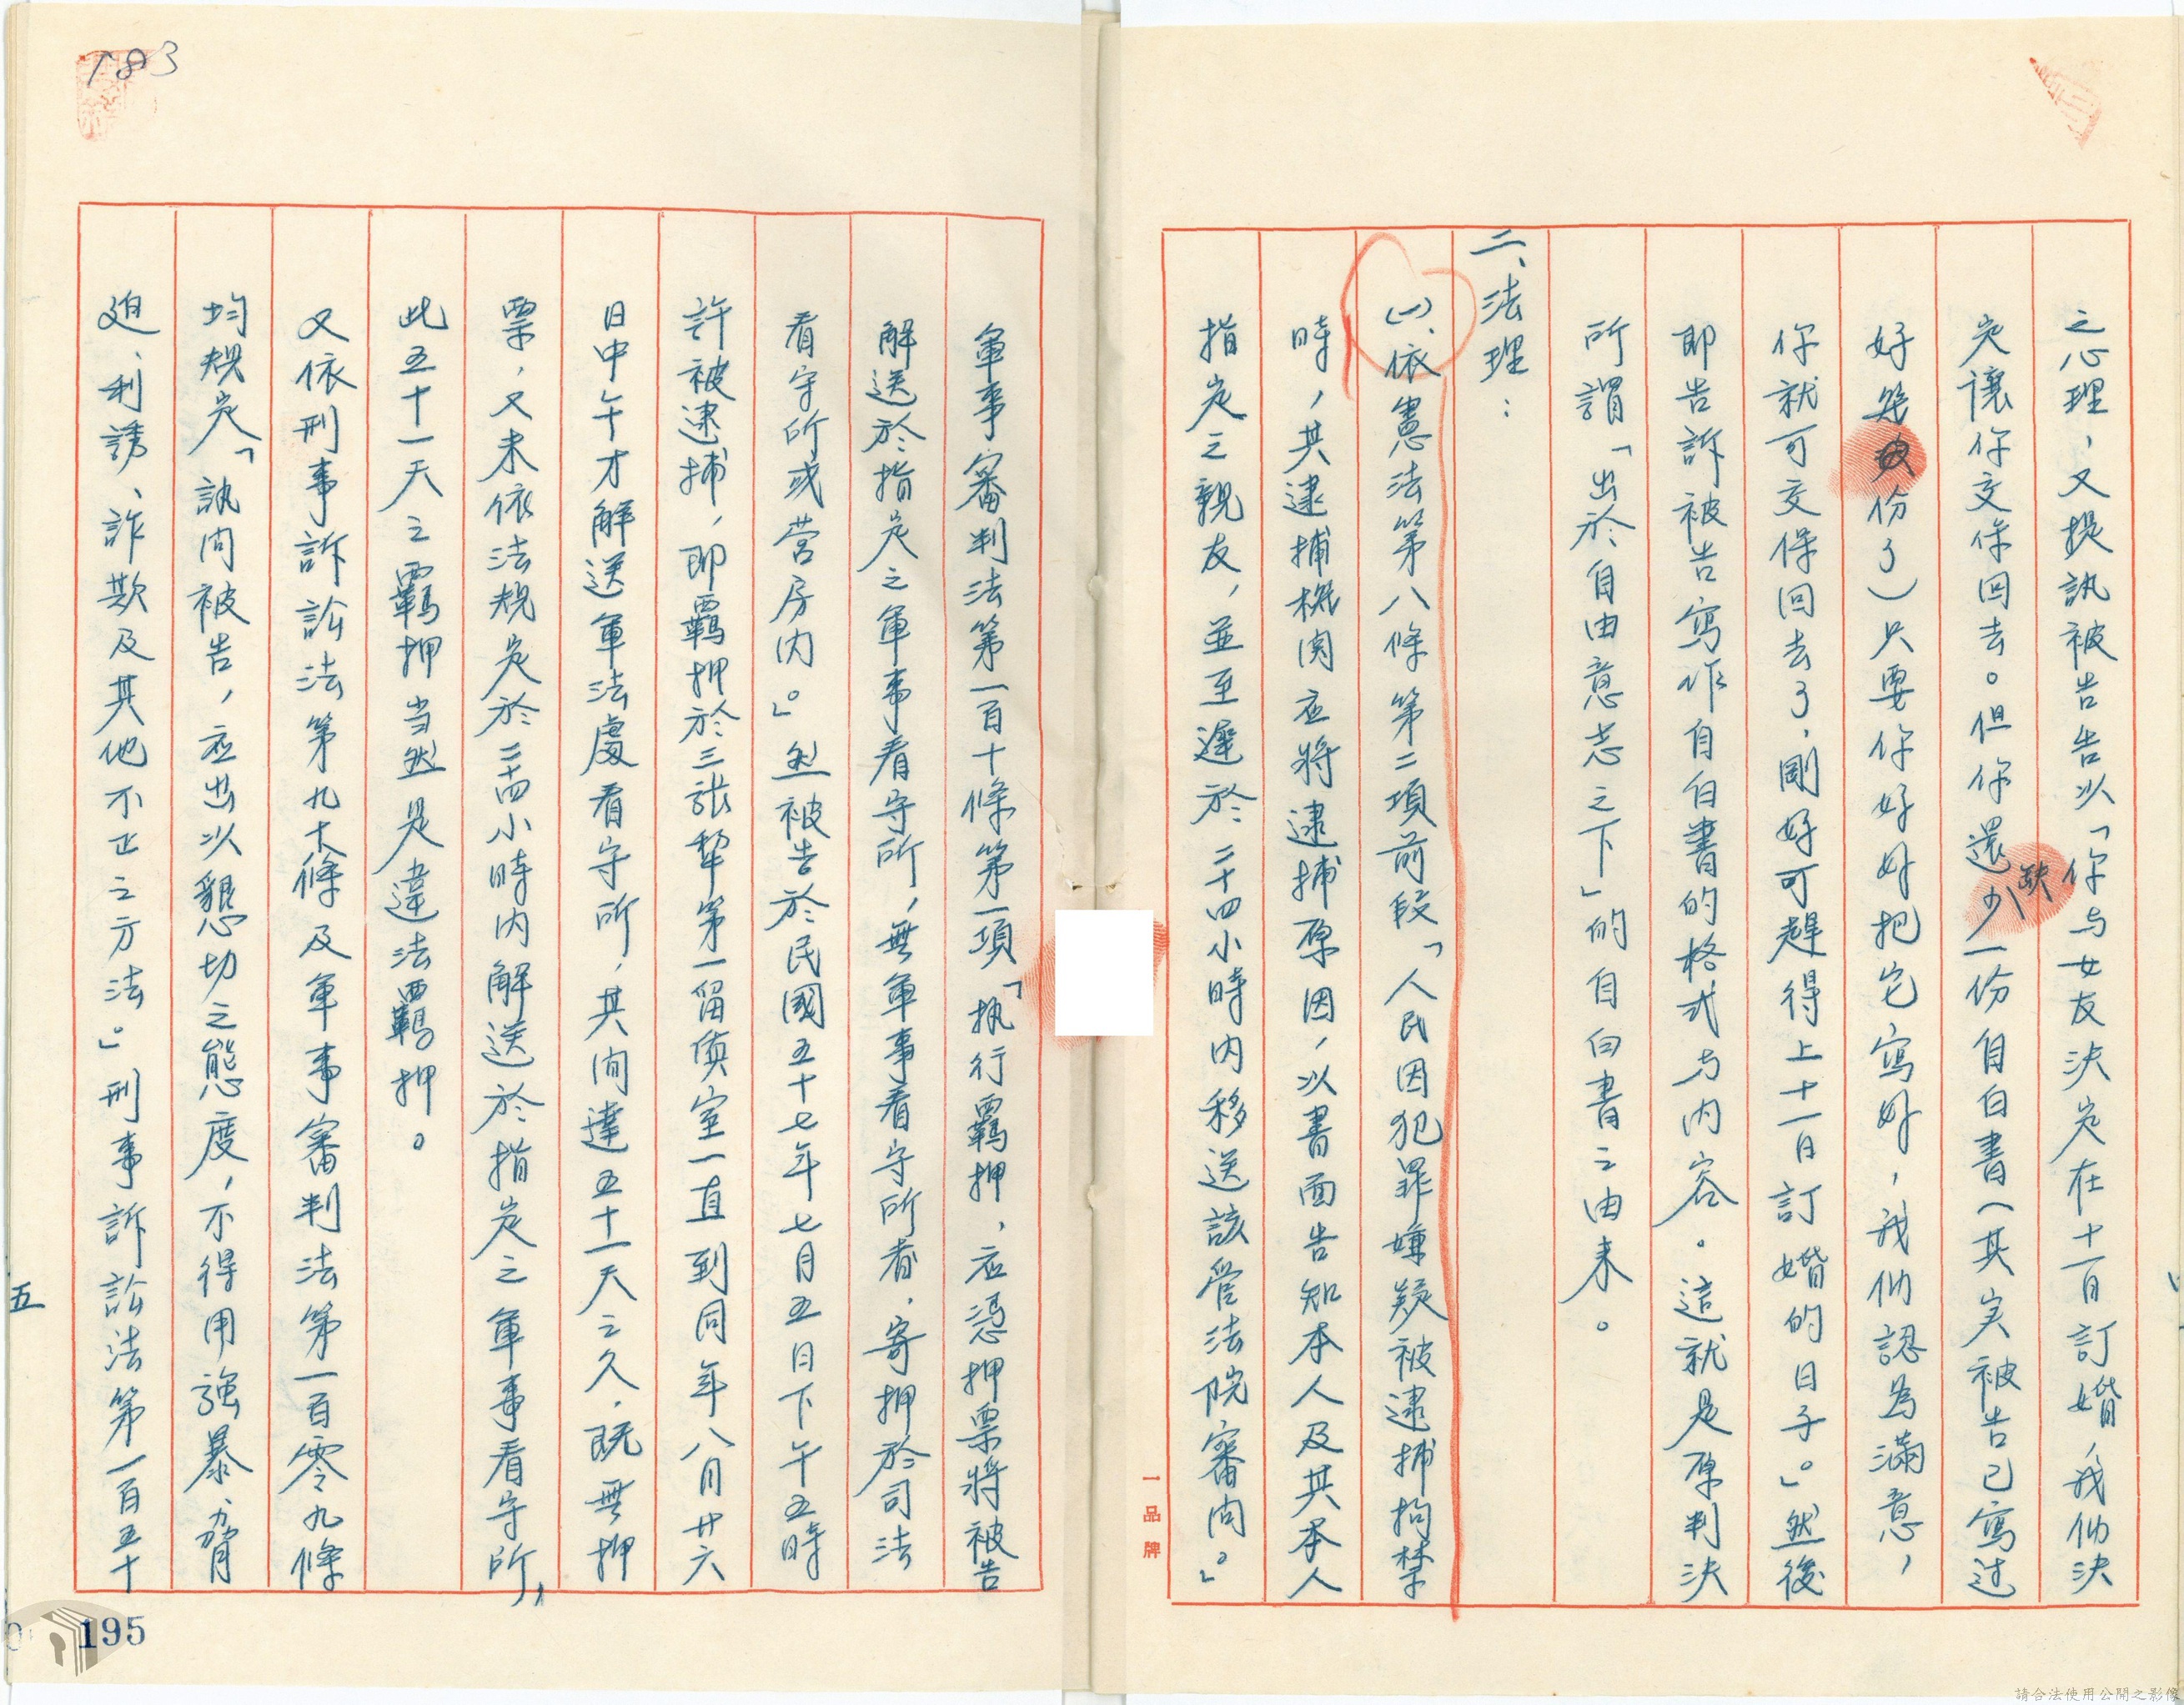 之心理，又提訊被告告以「你与女友決定在十一日訂婚，我们決
定讓你交保回去。但你還缺少一份自白書（其实被告已寫过
好幾份了）只要你好好把它寫好，我们認为滿意，
你就可交保回去了，剛好可趕得上十一日訂婚的日子。」然後
即告訴被告寫作自白書的格式与内容。這就是原判決
所謂「出於自由意志之下」的自白書之由来。
二、法理：
㈠、依憲法第八條第二項前段「人民因犯罪嫌疑被逮捕拘禁
時，其逮捕機関应將逮捕原因，以書面告知本人及其本人
指定之親友，並至遲於二十四小時内移送該管法院審问。」
一品牌
軍事審判法第一百十條第一項「执行羈押，应憑押票將被告
解送於指定之軍事看守所，無軍事看守所者，寄押於司法
看守所或营房内。」然被告於民國五十七年七月五日下午五時
許被逮捕，即羈押於三張犂第一留偵室一直到同年八月廿六
日中午才解送軍法處看守所，其间達五十一天之久，既無押
票，又未依法規定於二十四小時内解送於指定之軍事看守所，
此五十一天之羈押当然是違法羈押。
又依刑事訴訟法第九十八條及軍事審判法第一百零九條
均規定「訊问被告，应出以懇切之態度，不得用強暴、脅
迫、利誘、詐欺及其他不正之方法。」刑事訴訟法第一百五十
五
183
195
請合法使用公開之影像